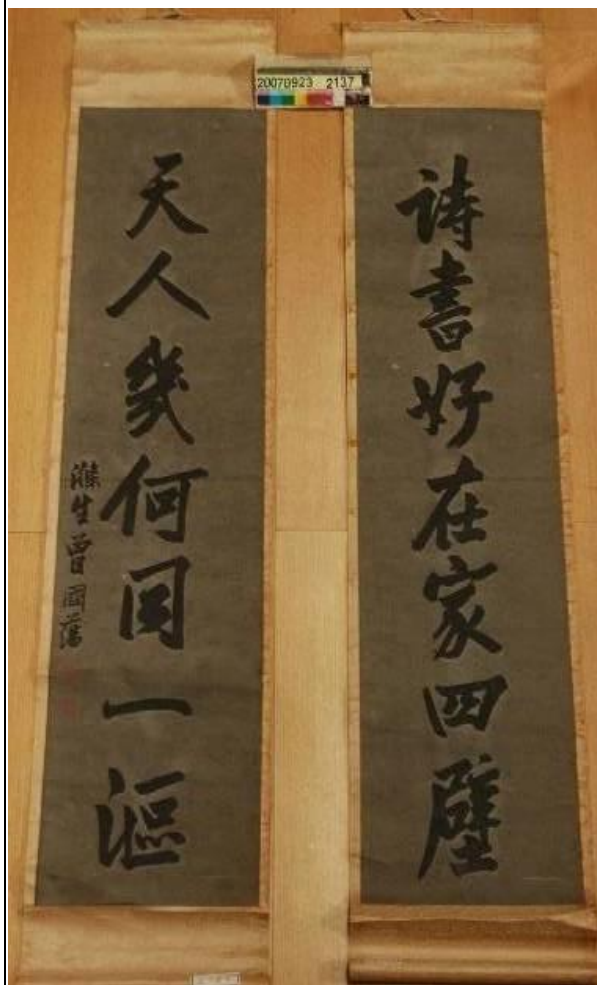 20070923 2137
詩書好在家四壁
天人幾何同一漚
滌生曾國藩